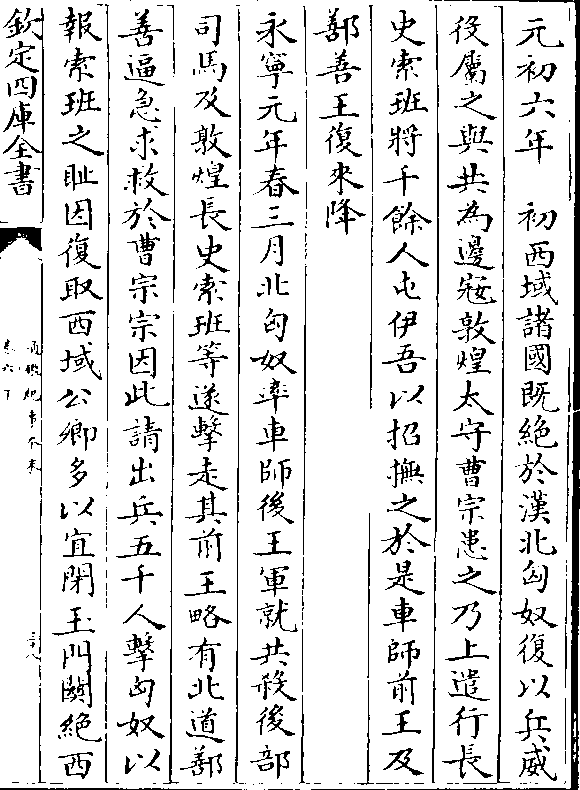 元初六年　初西域諸國既絶於漢北匈奴復以兵威
役屬之與共為邊寇敦煌太守曹宗患之乃上遣行長
史索班將千餘人屯伊吾以招撫之於是車師前王及
鄯善王復來降
永寧元年春三月北匈奴率車師後王軍就共殺後部
司馬及敦煌長史索班等遂擊走其前王略有北道鄯
善逼急求救於曹宗宗因此請出兵五千人擊匈奴以
報索班之耻因復取西域公卿多以宜閉玉門關絶西
欽定四庫全書
通鑑紀事本末
卷六下